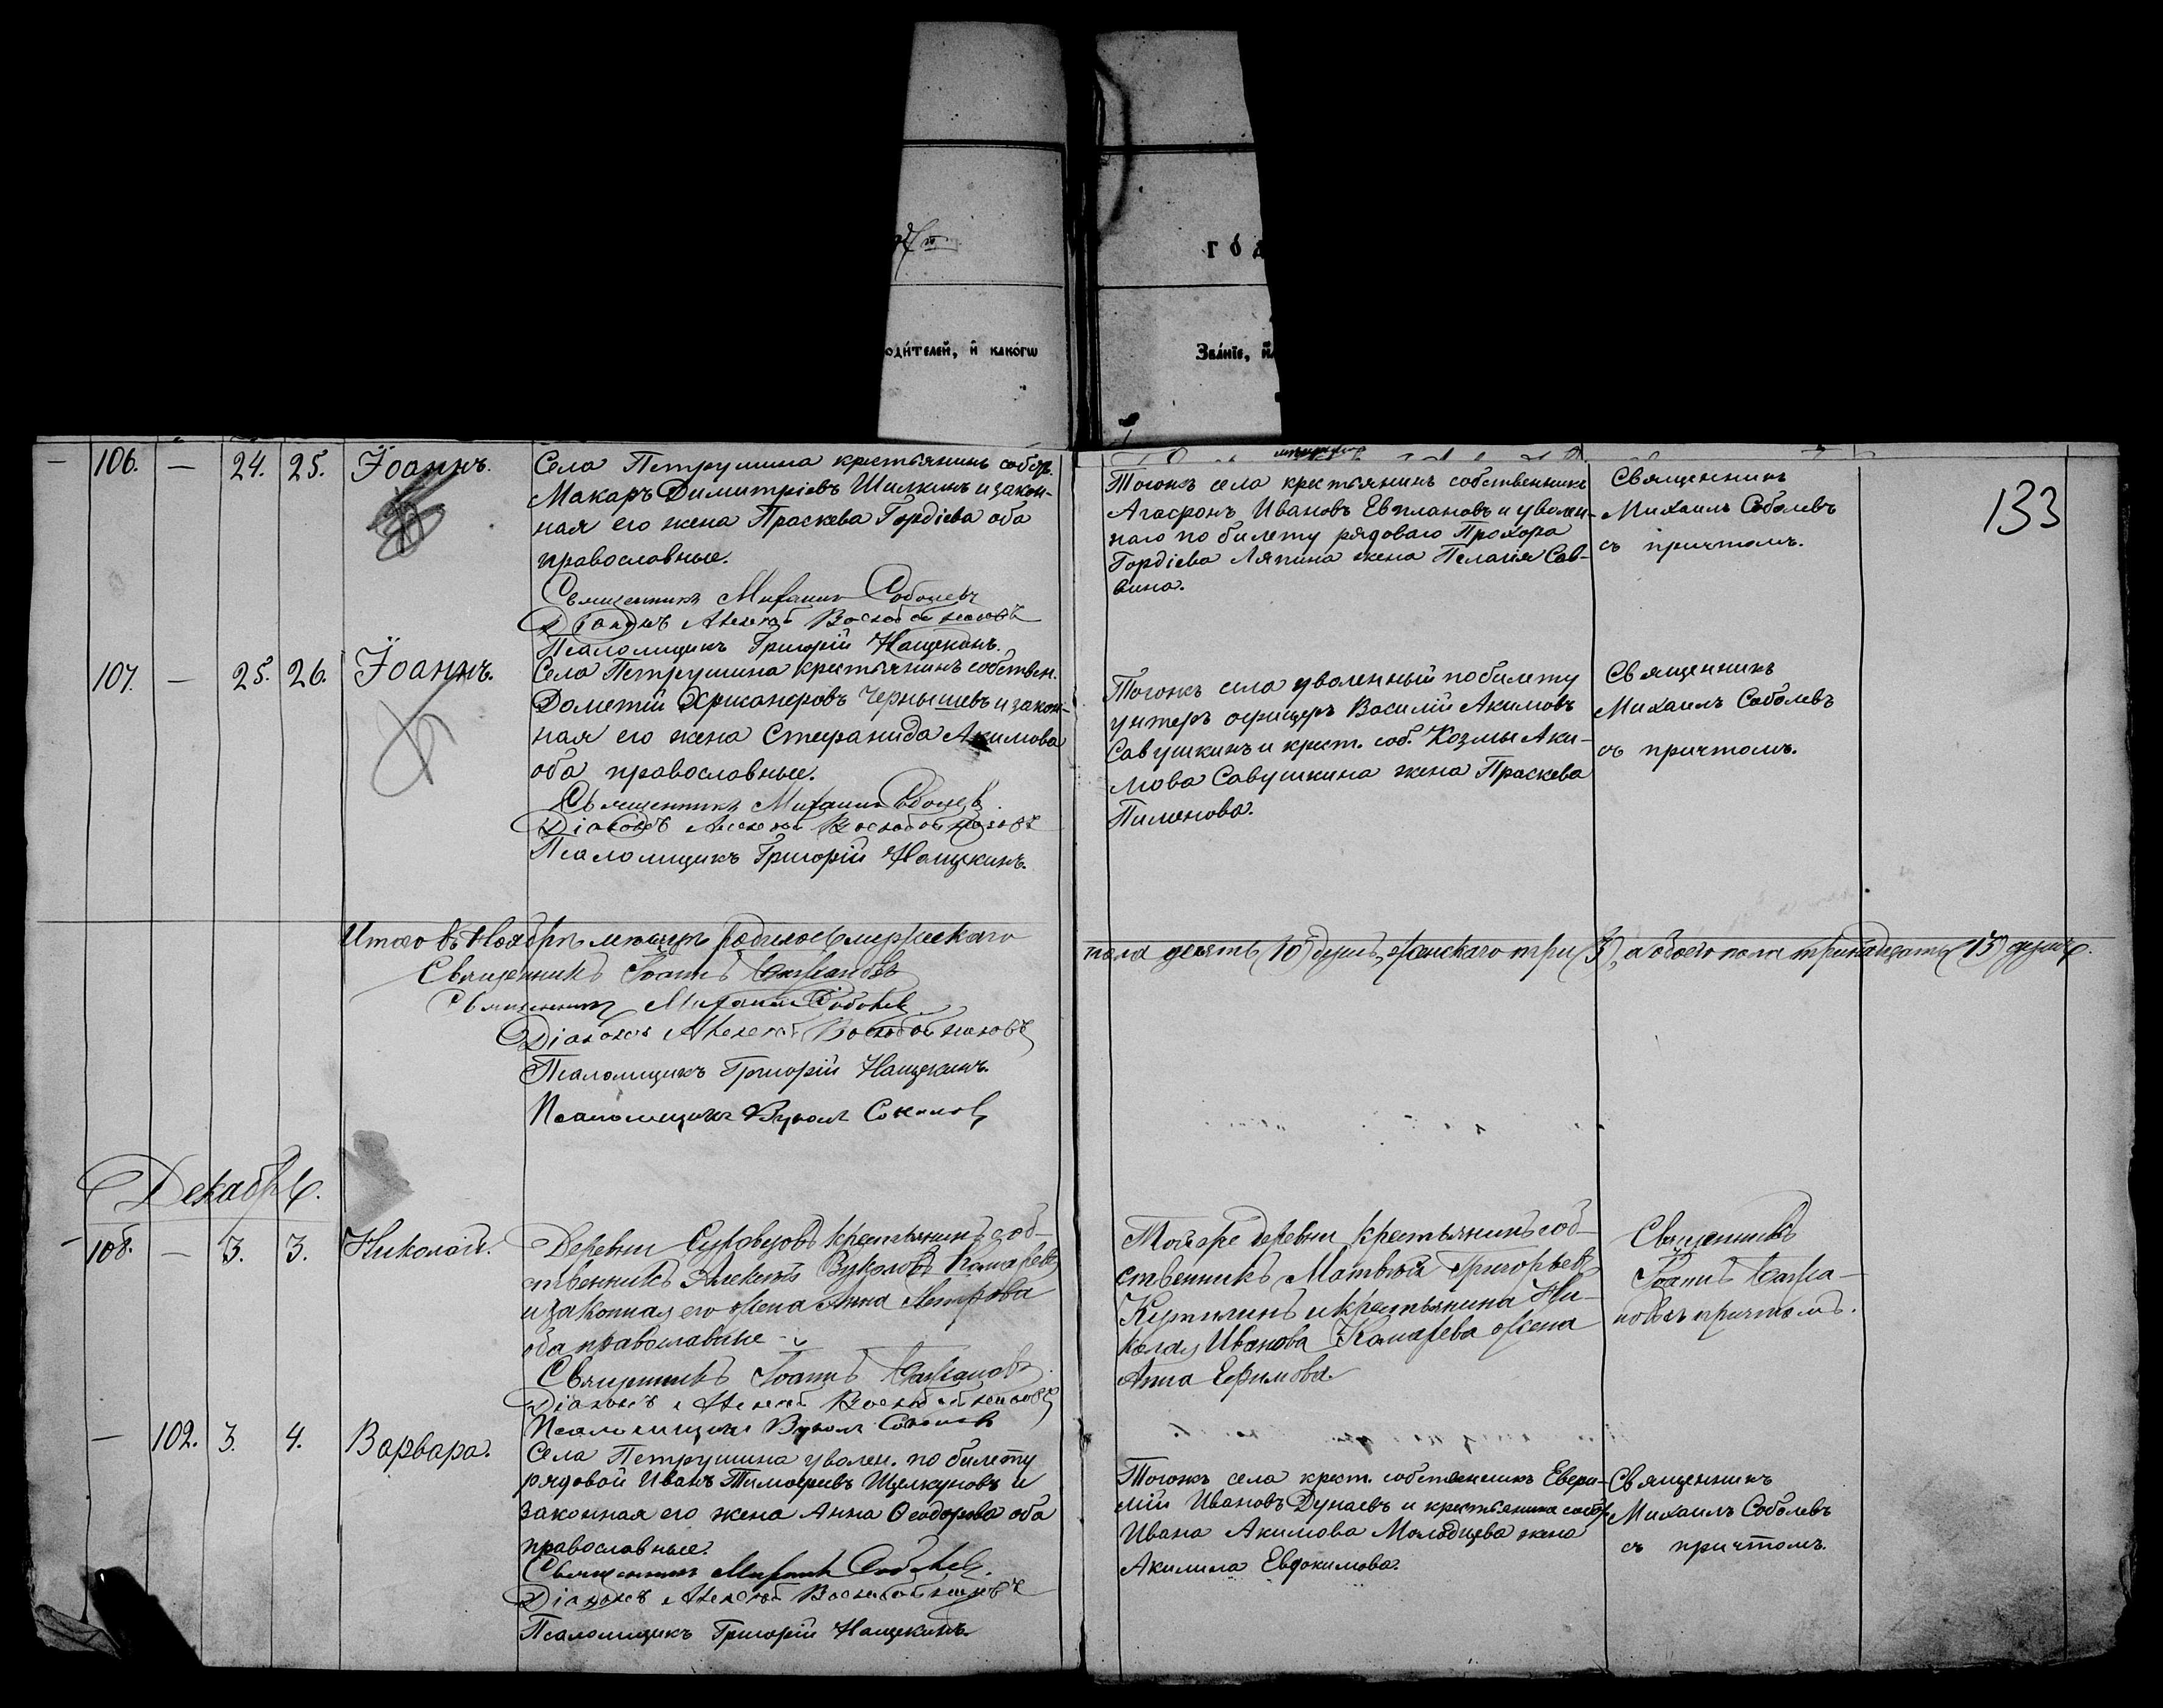 год
одителей, и какогѡ
Званїе, и
133
106. — 24. 25. Іоаннъ.
Села Петрушина крестьянинъ собств.
Макаръ Димитріевъ Шилкинъ и закон-
ная его жена Праскева Гордіева оба
православные.
Священникъ Михаилъ Соболевъ
Діаконъ Алексѣй
Псаломщикъ Григорій Нащекинъ.
Тогожъ села крестьянинъ собственникъ
Агафонъ Ивановъ Евплановъ и уволен-
наго по билету рядоваго Прохора
Гордіева Ляпина жена Пелагія Сав-
вина.
Священникъ
Михаилъ Соболевъ
съ причтомъ.
107. — 25. 26. Іоаннъ.
Села Петрушина крестьянинъ собствен.
Дометій Хрисанфовъ Чернышевъ и закон-
ная его жена Стефанида Акимова
оба православные.
Священникъ Михаилъ Соболевъ
Діаконъ Алексѣй
Псаломщикъ Григорій Нащекинъ.
Тогожъ села уволенный по билету
унтеръ офицеръ Василій Акимовъ
Савушкинъ и крест. соб. Козмы Аки-
мова Савушкина жена Праскева
Пименова.
Священникъ
Михаилъ Соболевъ
съ причтомъ.
Итого въ Ноябрѣ мѣсяцѣ родилось мужескаго
пола десять (10) душъ, женскаго три (3), а обоего пола тринадцать (13) душъ.
Священникъ Іоаннъ
Священникъ Михаилъ Соболевъ
Діаконъ Алексѣй
Псаломщикъ Григорій Нащекинъ.
Псаломщикъ Вуколъ Соколовъ
Декабрь.
108. — 3. 3. Николай.
Деревни Суровцовъ крестьянинъ соб-
ственникъ Алексѣй Вуколовъ Комаревъ
и законная его жена Анна Петрова
оба православные
Священникъ Іоаннъ
Діаконъ Алексѣй
Псаломщикъ Вуколъ Соколовъ
Тойже деревни крестьянинъ соб-
ственникъ Матвѣй Григорьевъ
и крестьянина Ни-
колая Иванова Комарева жена
Анна Ефимова
Священникъ
Іоаннъ
новъ съ причтомъ.
— 102. 3. 4. Варвара.
Села Петрушина уволен. по билету
рядовой Иванъ Тимофеевъ Щелкуновъ и
законная его жена Анна Ѳеодорова оба
православные.
Священникъ Михаилъ Соболевъ.
Діаконъ Алексѣй
Псаломщикъ Григорій Нащекинъ.
Тогожъ села крест. собственникъ Евфи-
мій Ивановъ Дунаевъ и крестьянина собст.
Ивана Акимова Молодцева жена
Акилина Евдокимова.
Священникъ
Михаилъ Соболевъ
съ причтомъ.